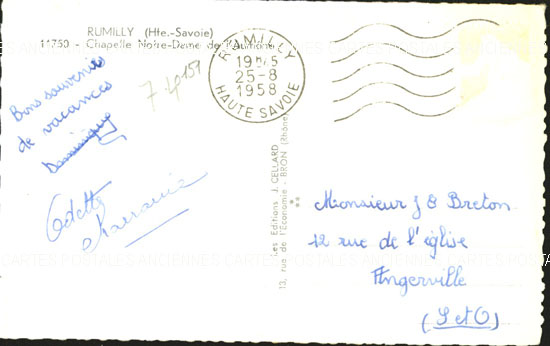 RUMILLY (Hte.-Savoie)
11750 - Chapelle Notre-Dame de l'Aumône
RUMILLY
19H15
25-8
1958
HAUTE SAVOIE
Bons souvenirs
de vacances
Dominique
Odette
Les Editions J. CELLARD
13, rue de l'Economie - BRON (Rhône)
Monsieur J B Breton
12 rue de l'église
Angerville
(S et O)
CARTES POSTALES ANCIENNES CARTES POSTALES ANCIENNES